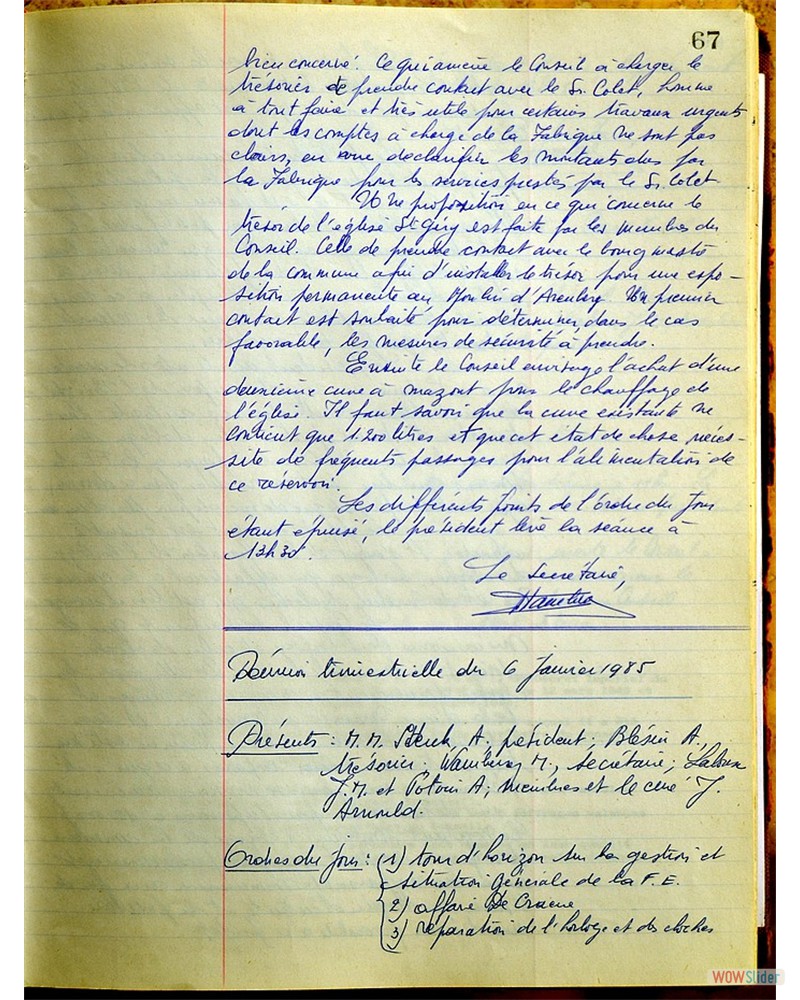 67
bien concerné. Ce qui amène le Conseil à charger le
trésorier de prendre contact avec le Sr. Colet, homme
à tout faire et très utile pour certains travaux urgents
dont les comptes à charge de la Fabrique ne sont pas
clairs, en vue de clarifier les montants dus par
la Fabrique pour les services prestés par le Sr. Colet.
Une proposition en ce qui concerne le
trésor de l'église St Géry est faite par les membres du
Conseil. Celle de prendre contact avec le bourgmestre
de la commune afin d'installer le trésor pour une expo-
sition permanente au Moulin d'Arenberg. Un premier
contact est souhaité pour déterminer, dans le cas
favorable, les mesures de sécurité à prendre.
Ensuite le Conseil envisage l'achat d'une
deuxième cuve à mazout pour le chauffage de
l'église. Il faut savoir que la cuve existante ne
contient que 1.200 litres et que cet état de chose néces-
site de fréquents passages pour l'alimentation de
ce réservoir.
Les différents points de l'ordre du jour
étant épuisé, le président lève la séance à
13h30.
Le Secrétaire,
Réunion trimestrielle du 6 janvier 1985
Présents : M.M. A. président; Blésin A,
trésorier; M., secrétaire;
J.M. et A; membres et le curé J.
Arnould.
Ordres du jour : 1) tour d'horizon sur la gestion et
situation générale de la F.E.
2) affaire De Craene
3) réparation de l'horloge et des cloches
WOWSlider